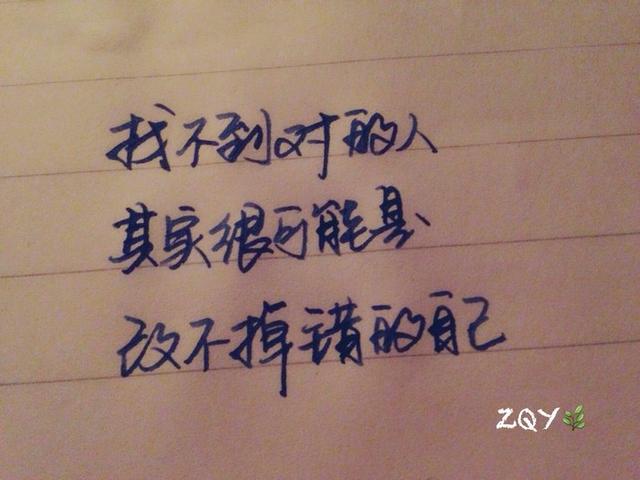 找不到对的人
其实很可能是
改不掉错的自己
ZQY